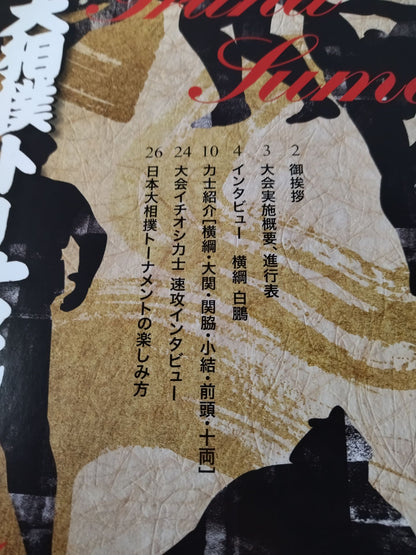 Sumo
大相撲トーナ
2 御挨拶
3 大会実施概要、進行表
4 インタビュー 横綱 白鵬
10 力士紹介[横綱・大関・関脇・小結・前頭・十両]
24 大会イチオシ力士 速攻インタビュー
26 日本大相撲トーナメントの楽しみ方